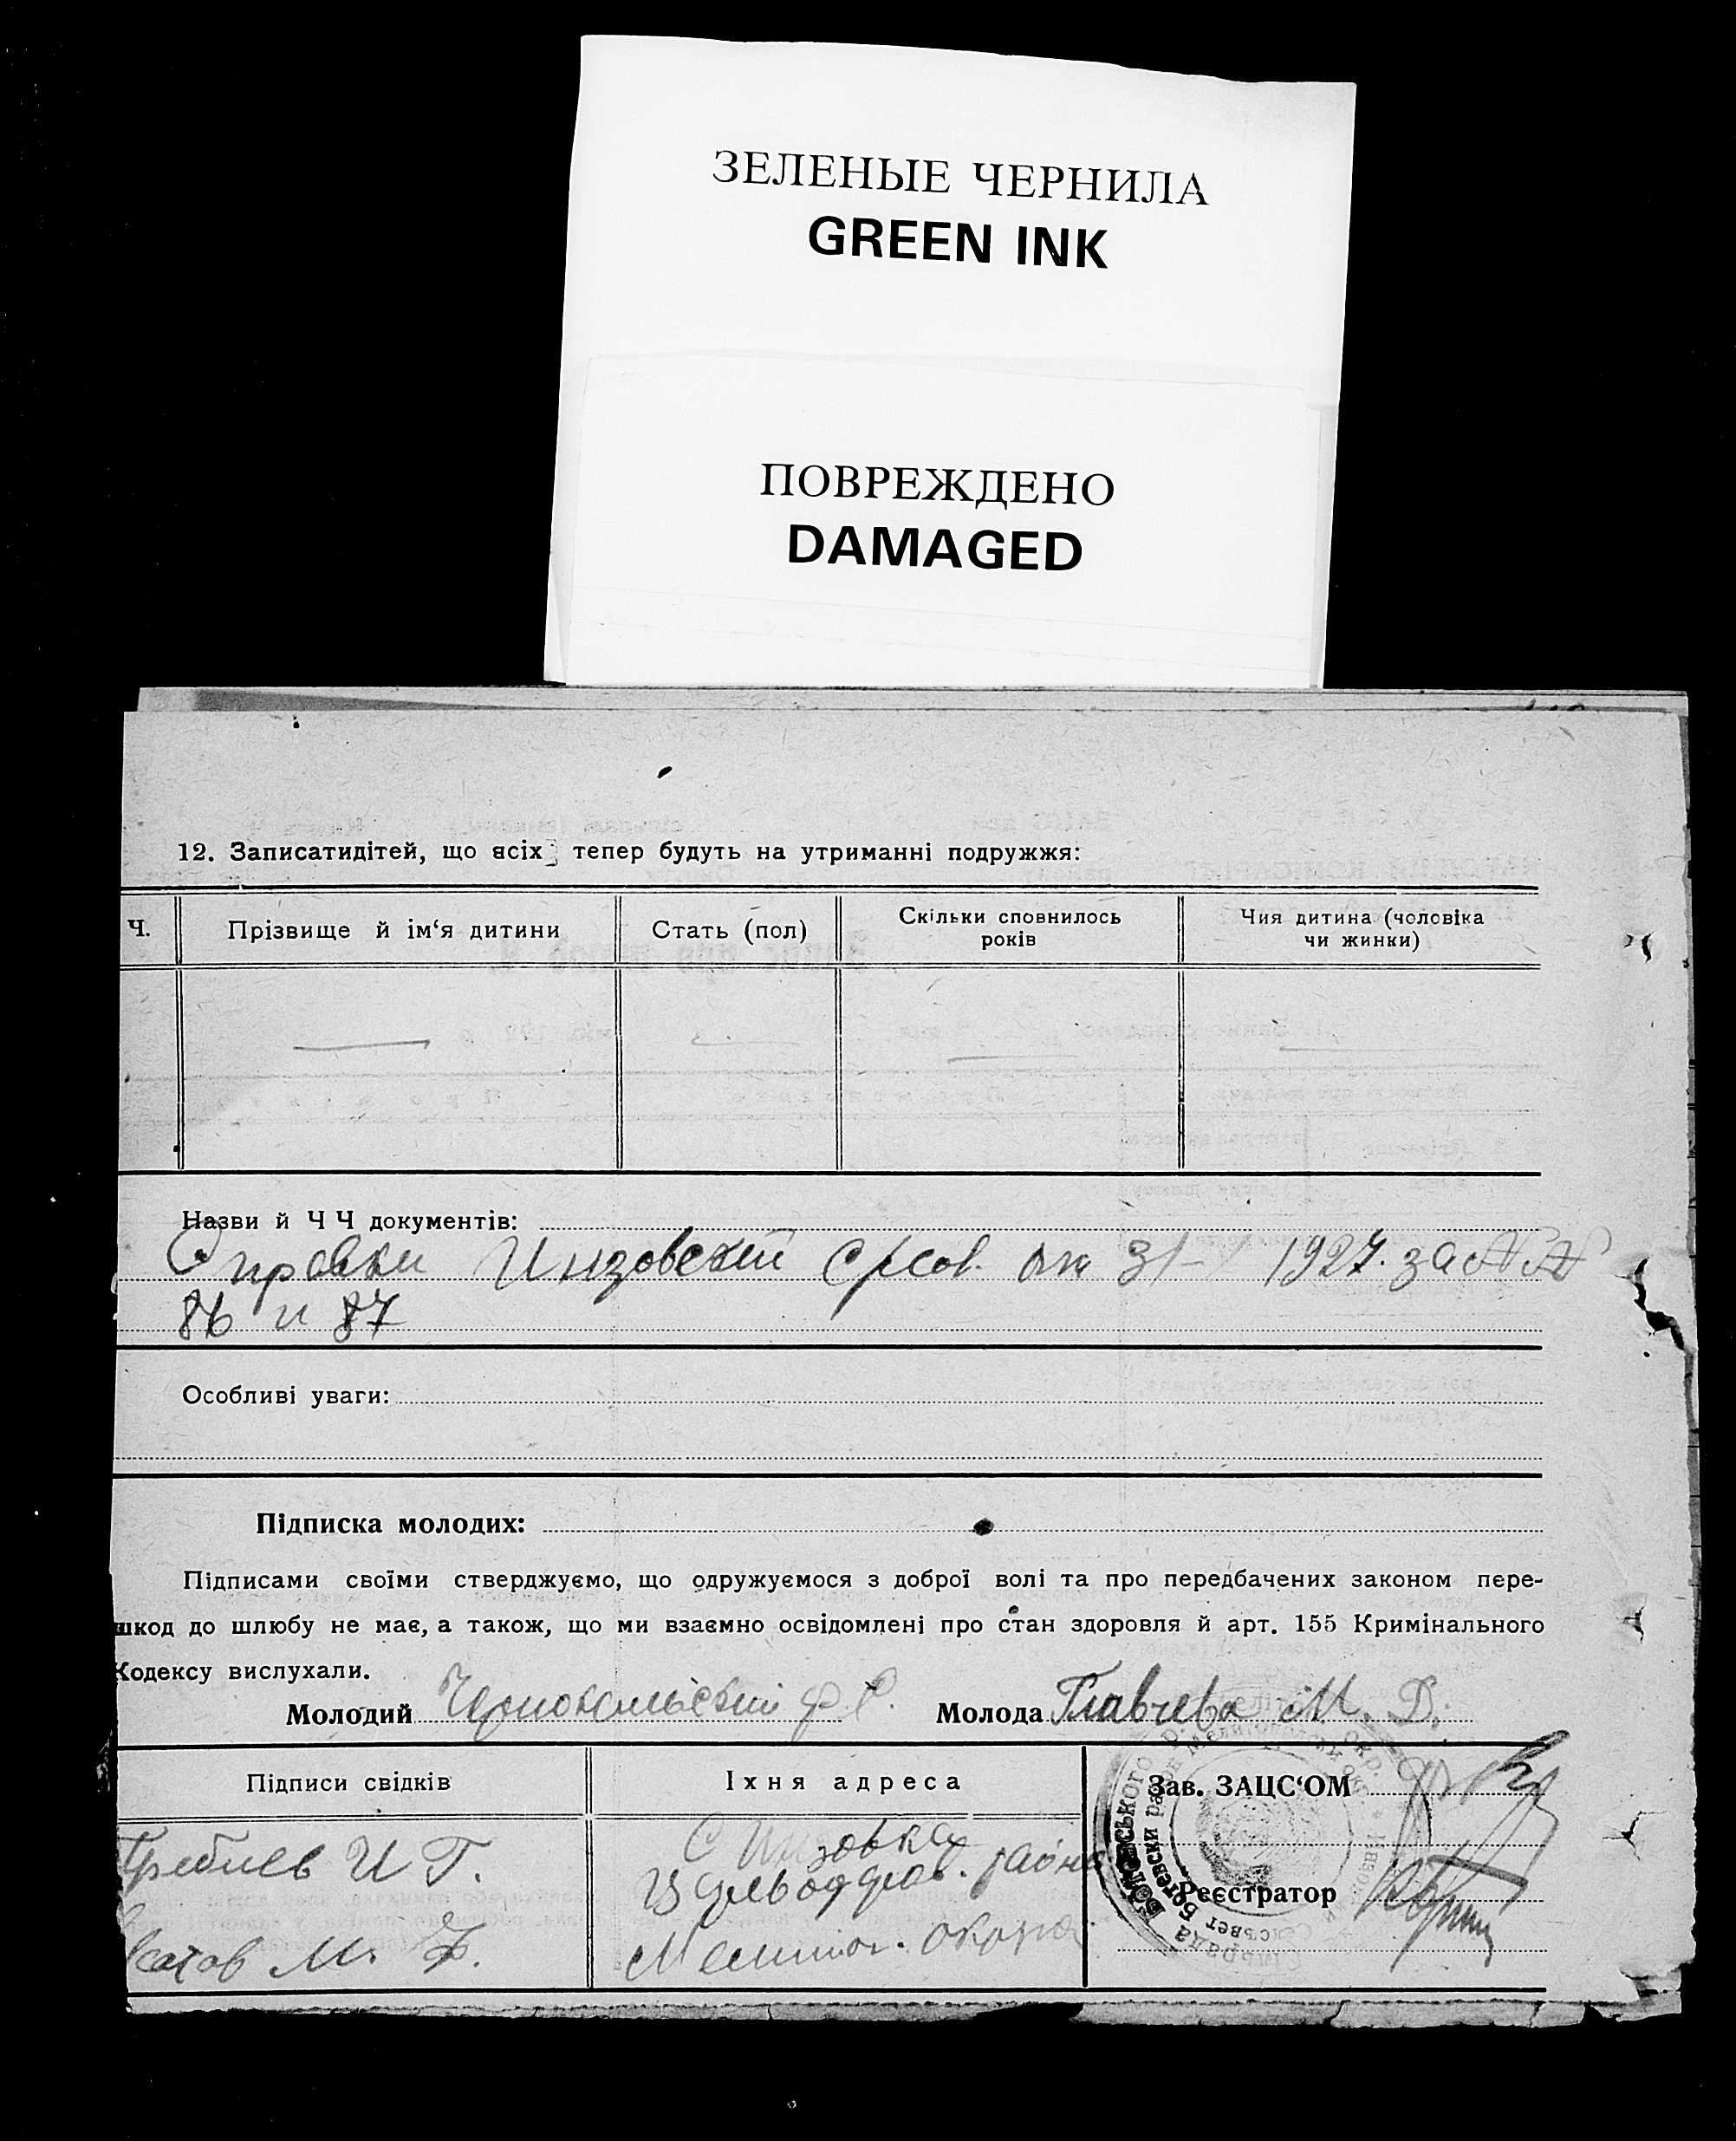 ЗЕЛЕНЫЕ ЧЕРНИЛА
GREEN INK
ПОВРЕЖДЕНО
DAMAGED
12. Записатидітей, що всіх тепер будуть на утриманні подружжя:
Ч.
Прізвище й ім‘я дитини
Стать (пол)
Скільки сповнилось
років
Чия дитина (чоловіка
чи жинки)
Назви й Ч Ч документів:
Справки Инзовский с/сов. от 31- 1927. за №№
86 и 87
Особливі уваги:
Підписка молодих:
Підписами своїми стверджуємо, що одружуємося з доброї волі та про передбачених законом пере-
шкод до шлюбу не має, а також, що ми взаємно освідомлені про стан здоровля й арт. 155 Кримінального
Кодексу вислухали.
Молодий
Молода Главчева М. Д.
Підписи свідків
Їхня адреса
Зав. ЗАЦС‘ОМ
И Г.
М.
С Инзовка
района
Мелитоп. округа
Реєстратор